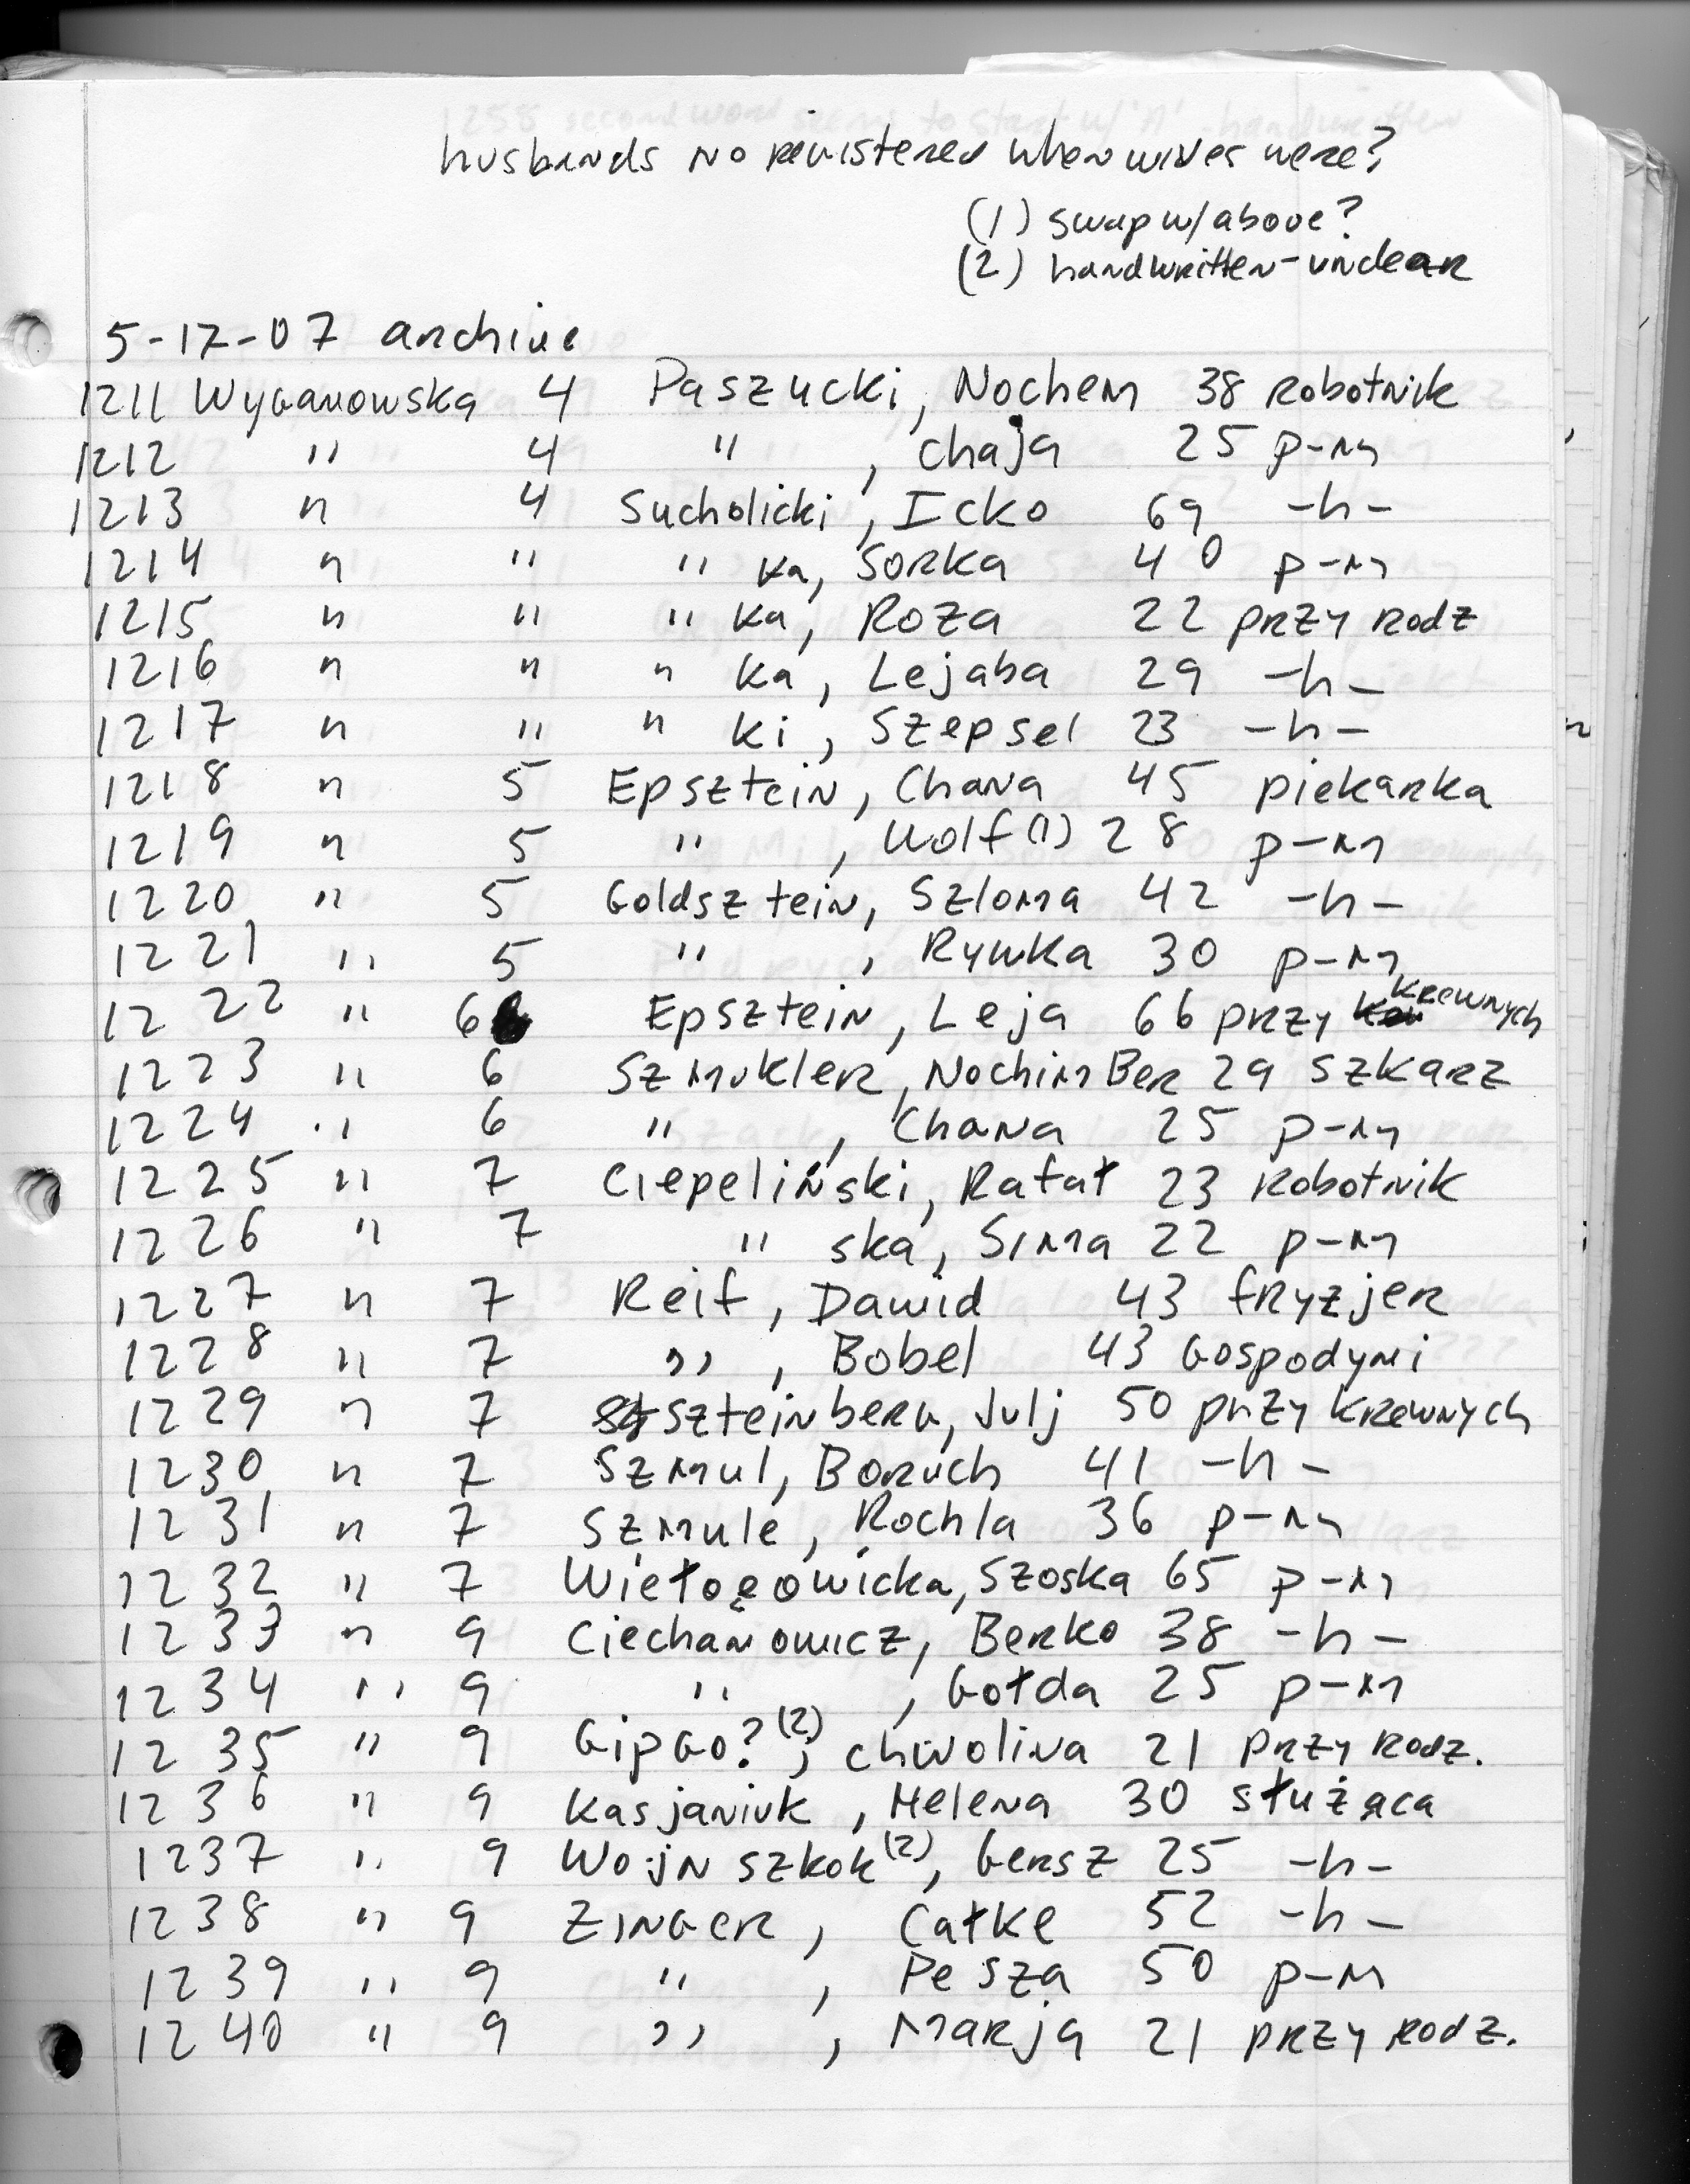 husbands no registered when wives were?
(1) swap w/above?
(2) handwritten-unclear
5-17-07 archive
1211 Wyganowska 4 Paszucki, Nochem 38 robotnik
1212 " 4 " , Chaja 25 p-m
1213 " 4 Sucholicki, Icko 69 -h-
1214 " " " ka, Sorka 40 p-m
1215 " " " ka, Roza 22 przy rodz
1216 " " " ka, Lejaba 29 -h-
1217 " " " ki, Szepsel 23 -h-
1218 " 5 Epsztein, Chana 45 piekarka
1219 " 5 " , Wolf (1) 28 p-m
1220 " 5 Goldsztein, Szloma 42 -h-
1221 " 5 " , Rywka 30 p-m
1222 " 6 Epsztein, Leja 66 przy krewnych
1223 " 6 Szmukler, Nochim Ber 29 szkarz
1224 " 6 " , Chana 25 p-m
1225 " 7 Ciepeliński, Rafał 23 robotnik
1226 " 7 " ska, Sima 22 p-m
1227 " 7 Reif, Dawid 43 fryzjer
1228 " 7 " , Bobel 43 gospodyni
1229 " 7 Szteinberg, Julj 50 przy krewnych
1230 " 7 Szmul, Boruch 41 -h-
1231 " 7 Szmule, Rochla 36 p-m
1232 " 7 Szoska 65 p-m
1233 " 9 Ciechanowicz, Berko 38 -h-
1234 " 9 " , Gołda 25 p-m
1235 " 9 Gipgo? (2), Chwolina 21 przy rodz.
1236 " 9 Kasjaniuk, Helena 30 służąca
1237 " 9 Wojn szkok (2), Gersz 25 -h-
1238 " 9 Zinger, Całke 52 -h-
1239 " 9 " , Pesza 50 p-m
1240 " 9 " , Marja 21 przy rodz.